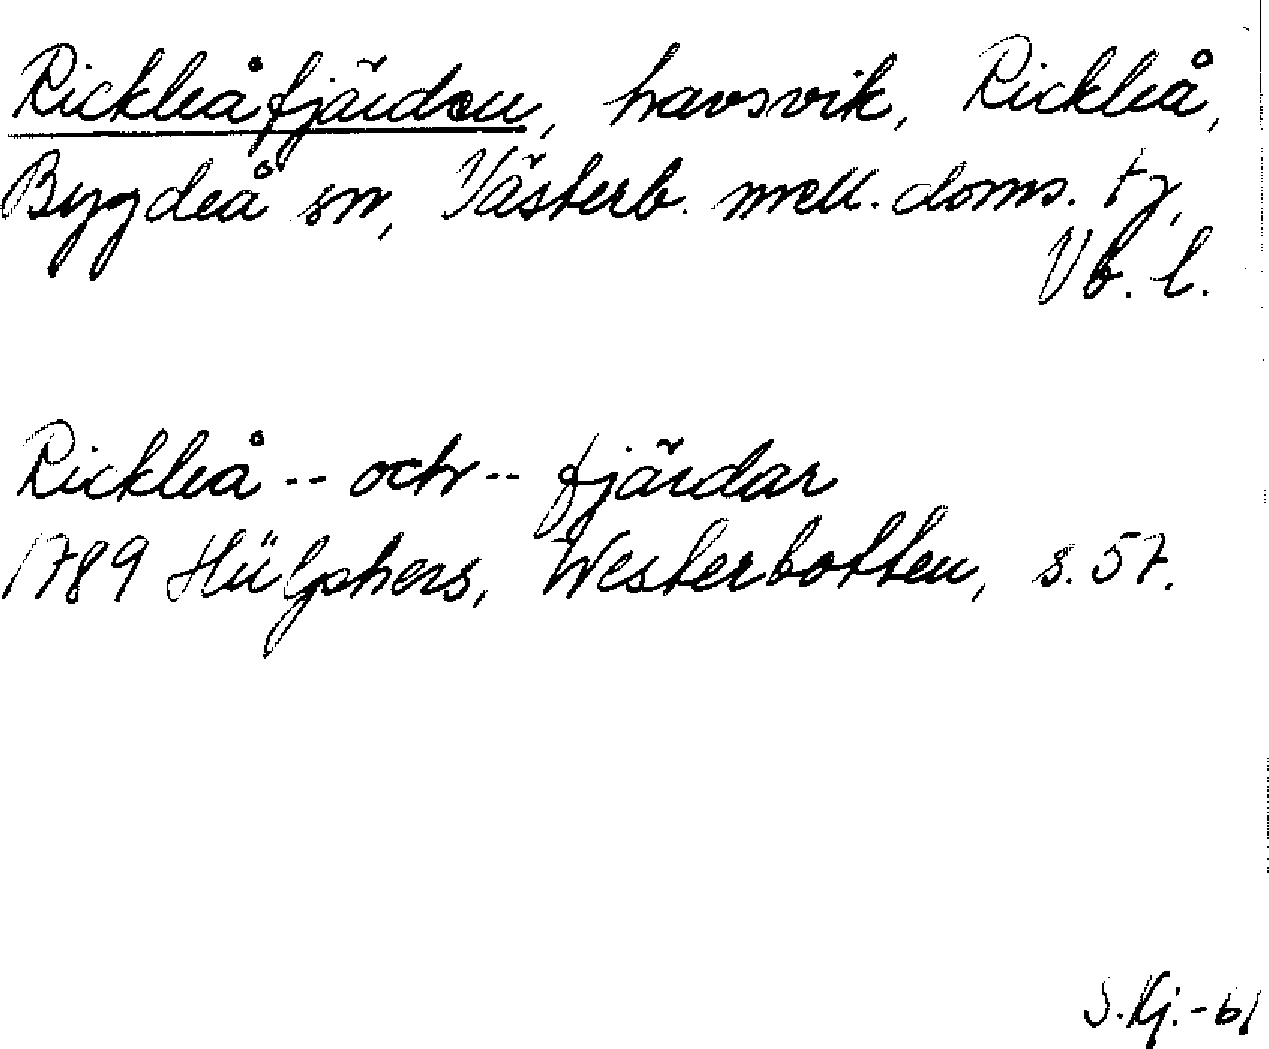 Rickleåfjärden, havsvik, Rickleå,
Bygdeå sn, Västerb. mell. doms. tg,
Vb. l.
Rickleå -- och -- fjärdar
1789 Hülphers, Westerbotten, s. 57.
S. Kj. -61